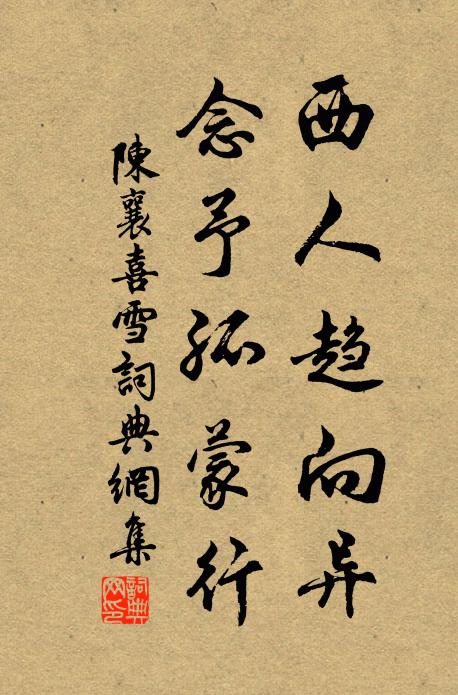 西人趋向异
念予孤蒙行
陳襄喜雪詞典網集
詞典网印